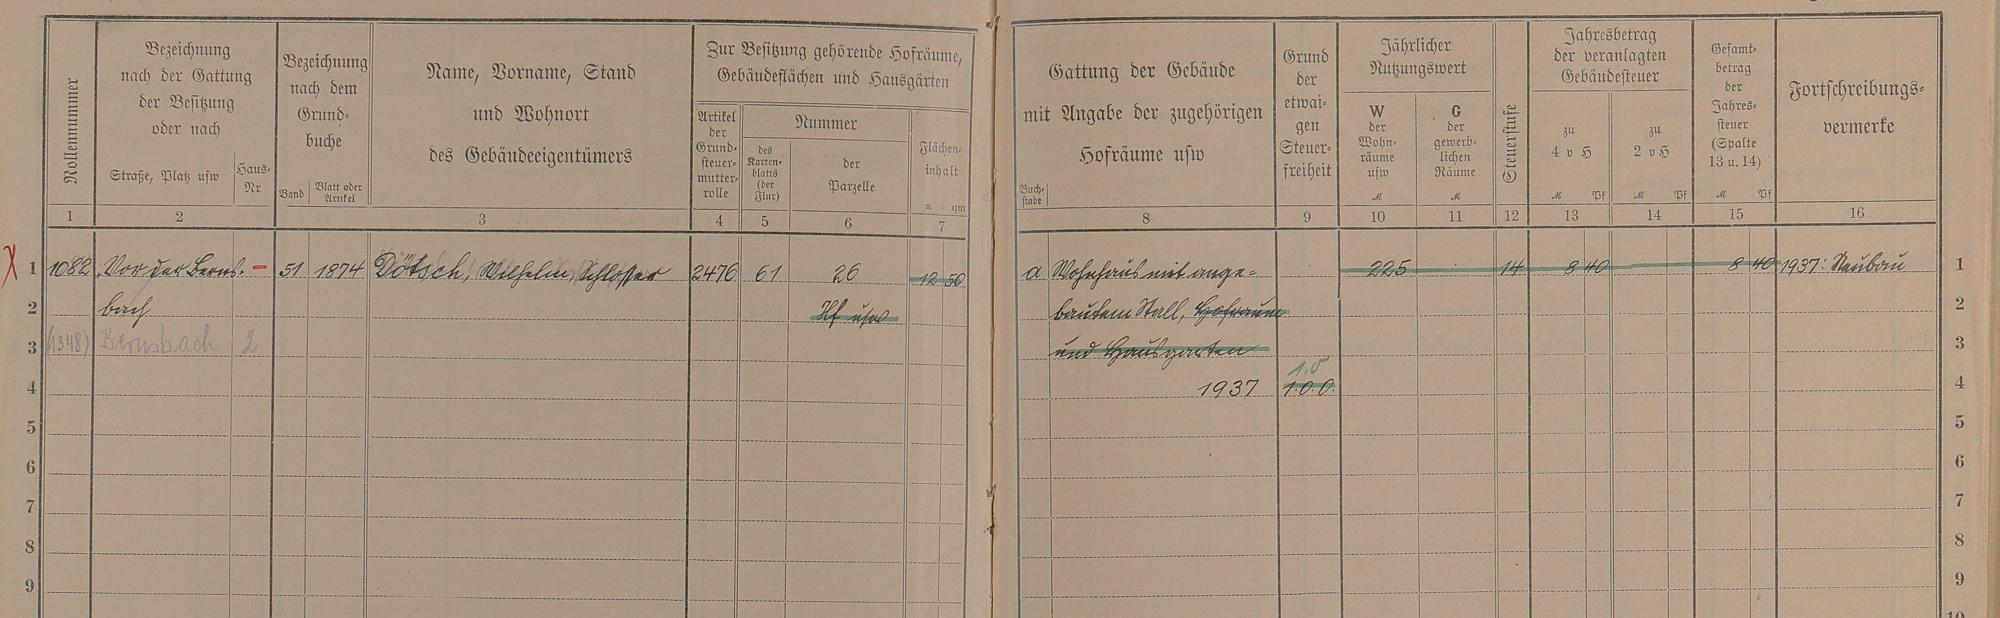 Rollennummer
Bezeichnung
nach der Gattung
der Besitzung
oder nach
Straße, Platz usw
Haus-
Nr
Bezeichnung
nach dem
Grund-
buche
Band
Blatt oder
Artikel
Name, Vorname, Stand
und Wohnort
des Gebäudeeigentümers
Zur Besitzung gehörende Hofräume,
Gebäudeflächen und Hausgärten
Artikel
der
Grund-
steuer-
mutter-
rolle
Nummer
des
Karten-
blatts
(der
Flur)
der
Parzelle
Flächen-
inhalt
a qm
Gattung der Gebäude
mit Angabe der zugehörigen
Hofräume usw
Buch-
stabe
Grund
der
etwai-
gen
Steuer-
freiheit
Jährlicher
Nutzungswert
W
der
Wohn-
räume
usw
M
G
der
gewerb-
lichen
Räume
M
Steuerstufe
Jahresbetrag
der veranlagten
Gebäudesteuer
zu
4 v H
M Pf
zu
2 v H
M Pf
Gesamt-
betrag
der
Jahres-
steuer
(Spalte
13 u. 14)
M Pf
Fortschreibungs-
vermerke
1 2 3 4 5 6 7 8 9 10 11 12 13 14 15 16
1 1082 Vor der Berns- – 51 1874 Dötsch, Wilhelm, Schlosser 2476 61 26 12 50 a Wohnhaus mit ange- 225 14 8 40 8 40 1937: Neubau 1
2 bach Hf usw bautem Stall, Hofraum 2
3 (1348) Bernsbach 2 und Hausgarten 3
1.5
4 1937 1.0.0. 4
5 5
6 6
7 7
8 8
9 9
10